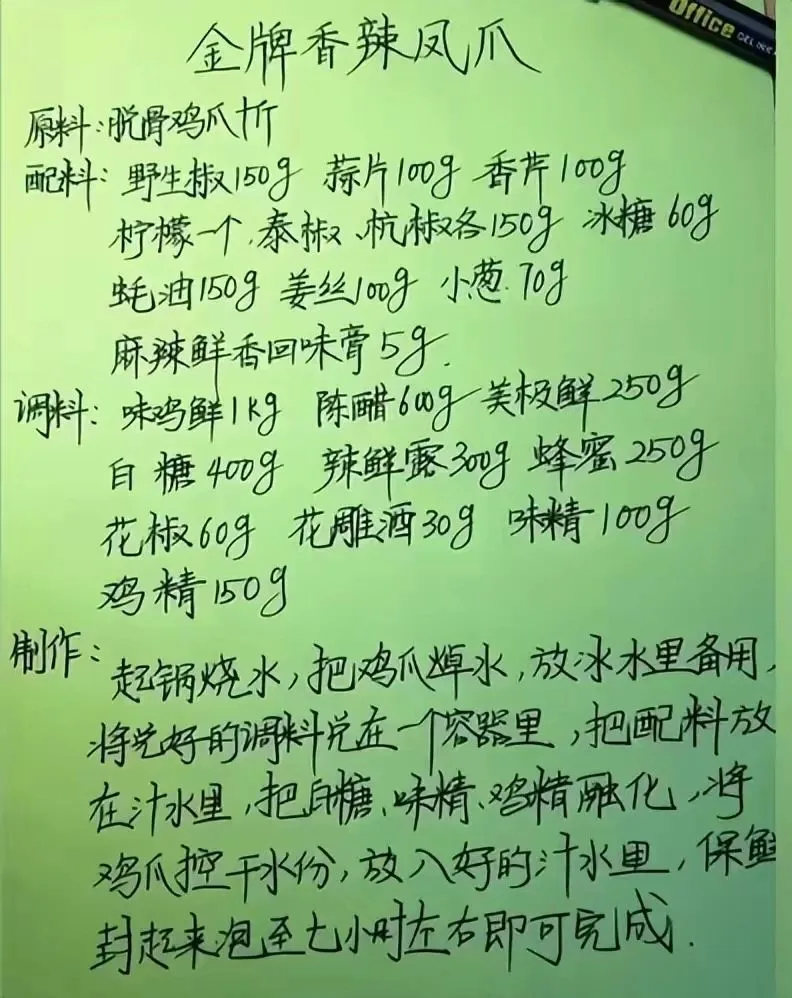 Office
金牌香辣凤爪
原料：脱骨鸡爪十斤
配料：野生椒150g 蒜片100g 香芹100g
柠檬一个、泰椒、杭椒各150g 冰糖60g
蚝油150g 姜丝100g 小葱.70g
麻辣鲜香回味膏5g.
调料：味鸡鲜1kg 陈醋600g 美极鲜250g
白糖400g 辣鲜露300g 蜂蜜250g
花椒60g 花雕酒30g 味精100g
鸡精150g
制作：起锅烧水，把鸡爪焯水，放冰水里备用，
将兑好的调料兑在一个容器里，把配料放
在汁水里，把白糖、味精、鸡精融化，将
鸡爪控干水份，放入好的汁水里，保鲜
封起来泡至七小时左右即可完成.